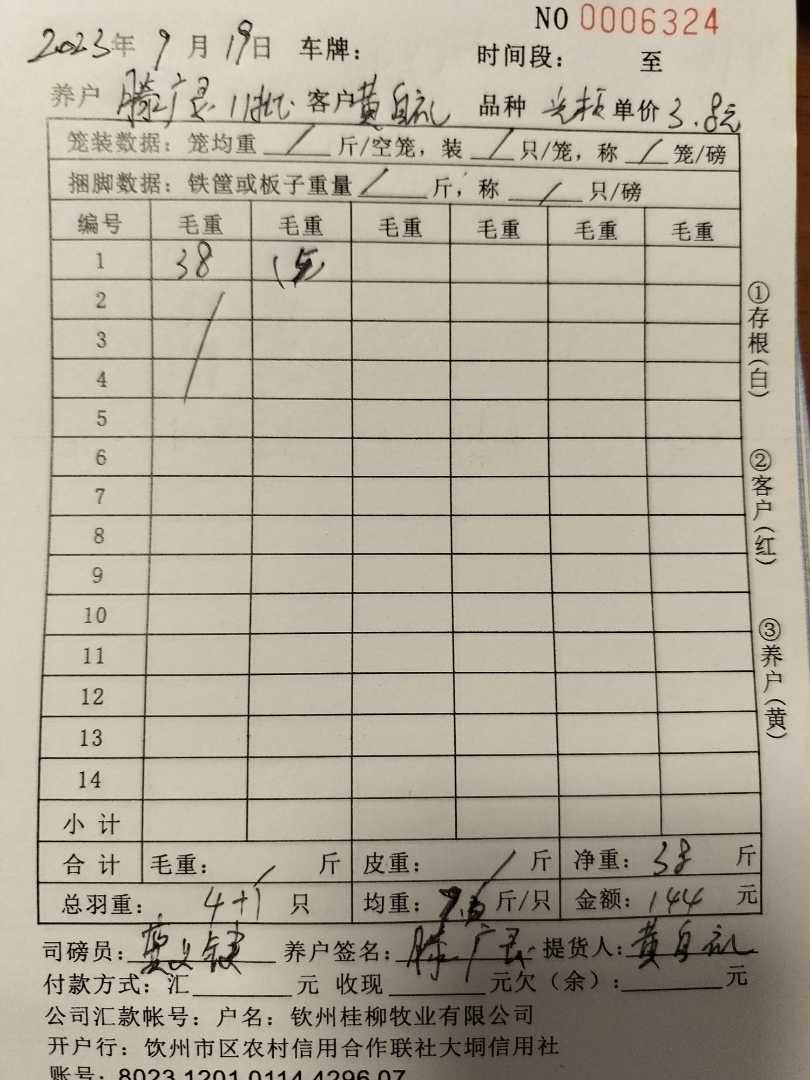 NO 0006324
2023年 9 月 19日 车牌: 时间段: 至
养户 滕广灵 11批 客户 黄自礼 品种 单价 3.8元
笼装数据: 笼均重 / 斤/空笼, 装 / 只/笼, 称 / 笼/磅
捆脚数据: 铁筐或板子重量 / 斤, 称 / 只/磅
编号 毛重 毛重 毛重 毛重 毛重 毛重
1 38
2
3
4
5
6
7
8
9
10
11
12
13
14
小 计
合 计 毛重: / 斤 皮重: / 斤 净重: 38 斤
总羽重: 4+1 只 均重: 7.6 斤/只 金额: 144 元
司磅员: 养户签名: 滕广灵 提货人: 黄自礼
付款方式: 汇 元 收现 元欠 (余): 元
公司汇款帐号: 户名: 钦州桂柳牧业有限公司
开户行: 钦州市区农村信用合作联社大垌信用社
账号: 8023 1201 0114 4296 07
①存根(白)
②客户(红)
③养户(黄)